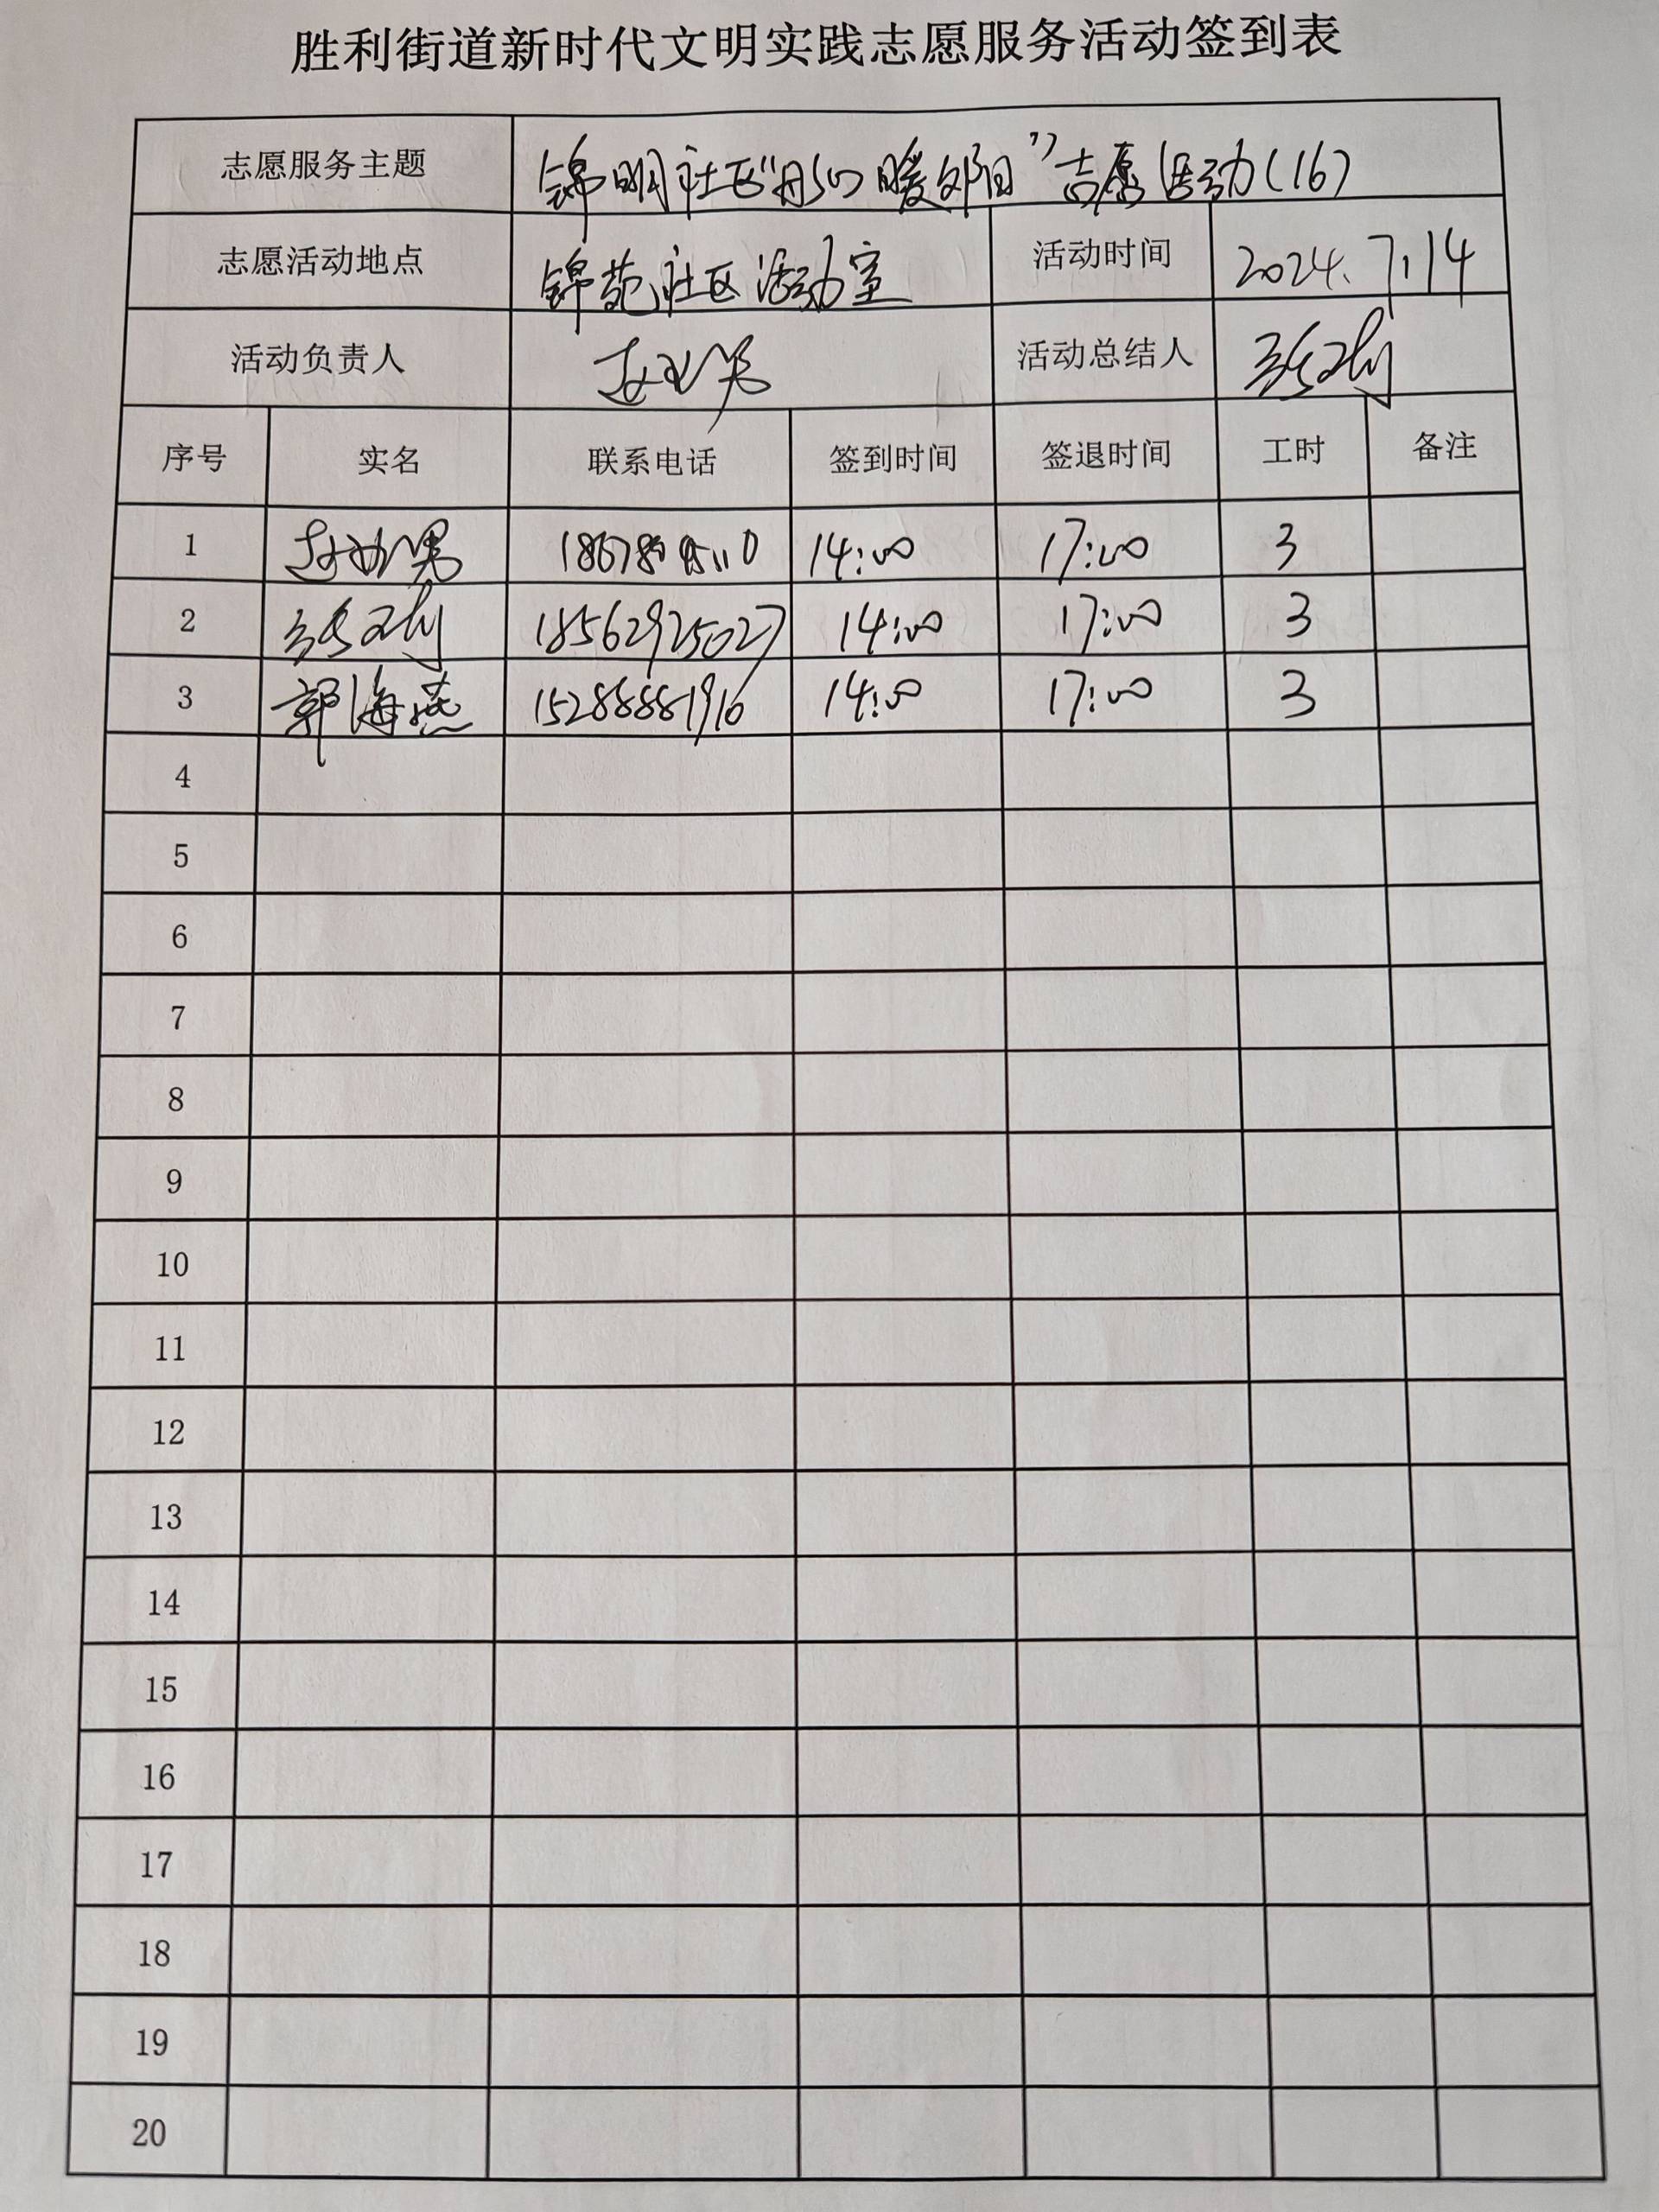 胜利街道新时代文明实践志愿服务活动签到表
志愿服务主题 锦明社区“丹心暖夕阳”志愿活动(16)
志愿活动地点 锦苑社区活动室 活动时间 2024.7.14
活动负责人 活动总结人
序号 实名 联系电话 签到时间 签退时间 工时 备注
1 14:00 17:00 3
2 18562925027 14:00 17:00 3
3 郭海燕 15288881916 14:00 17:00 3
4
5
6
7
8
9
10
11
12
13
14
15
16
17
18
19
20